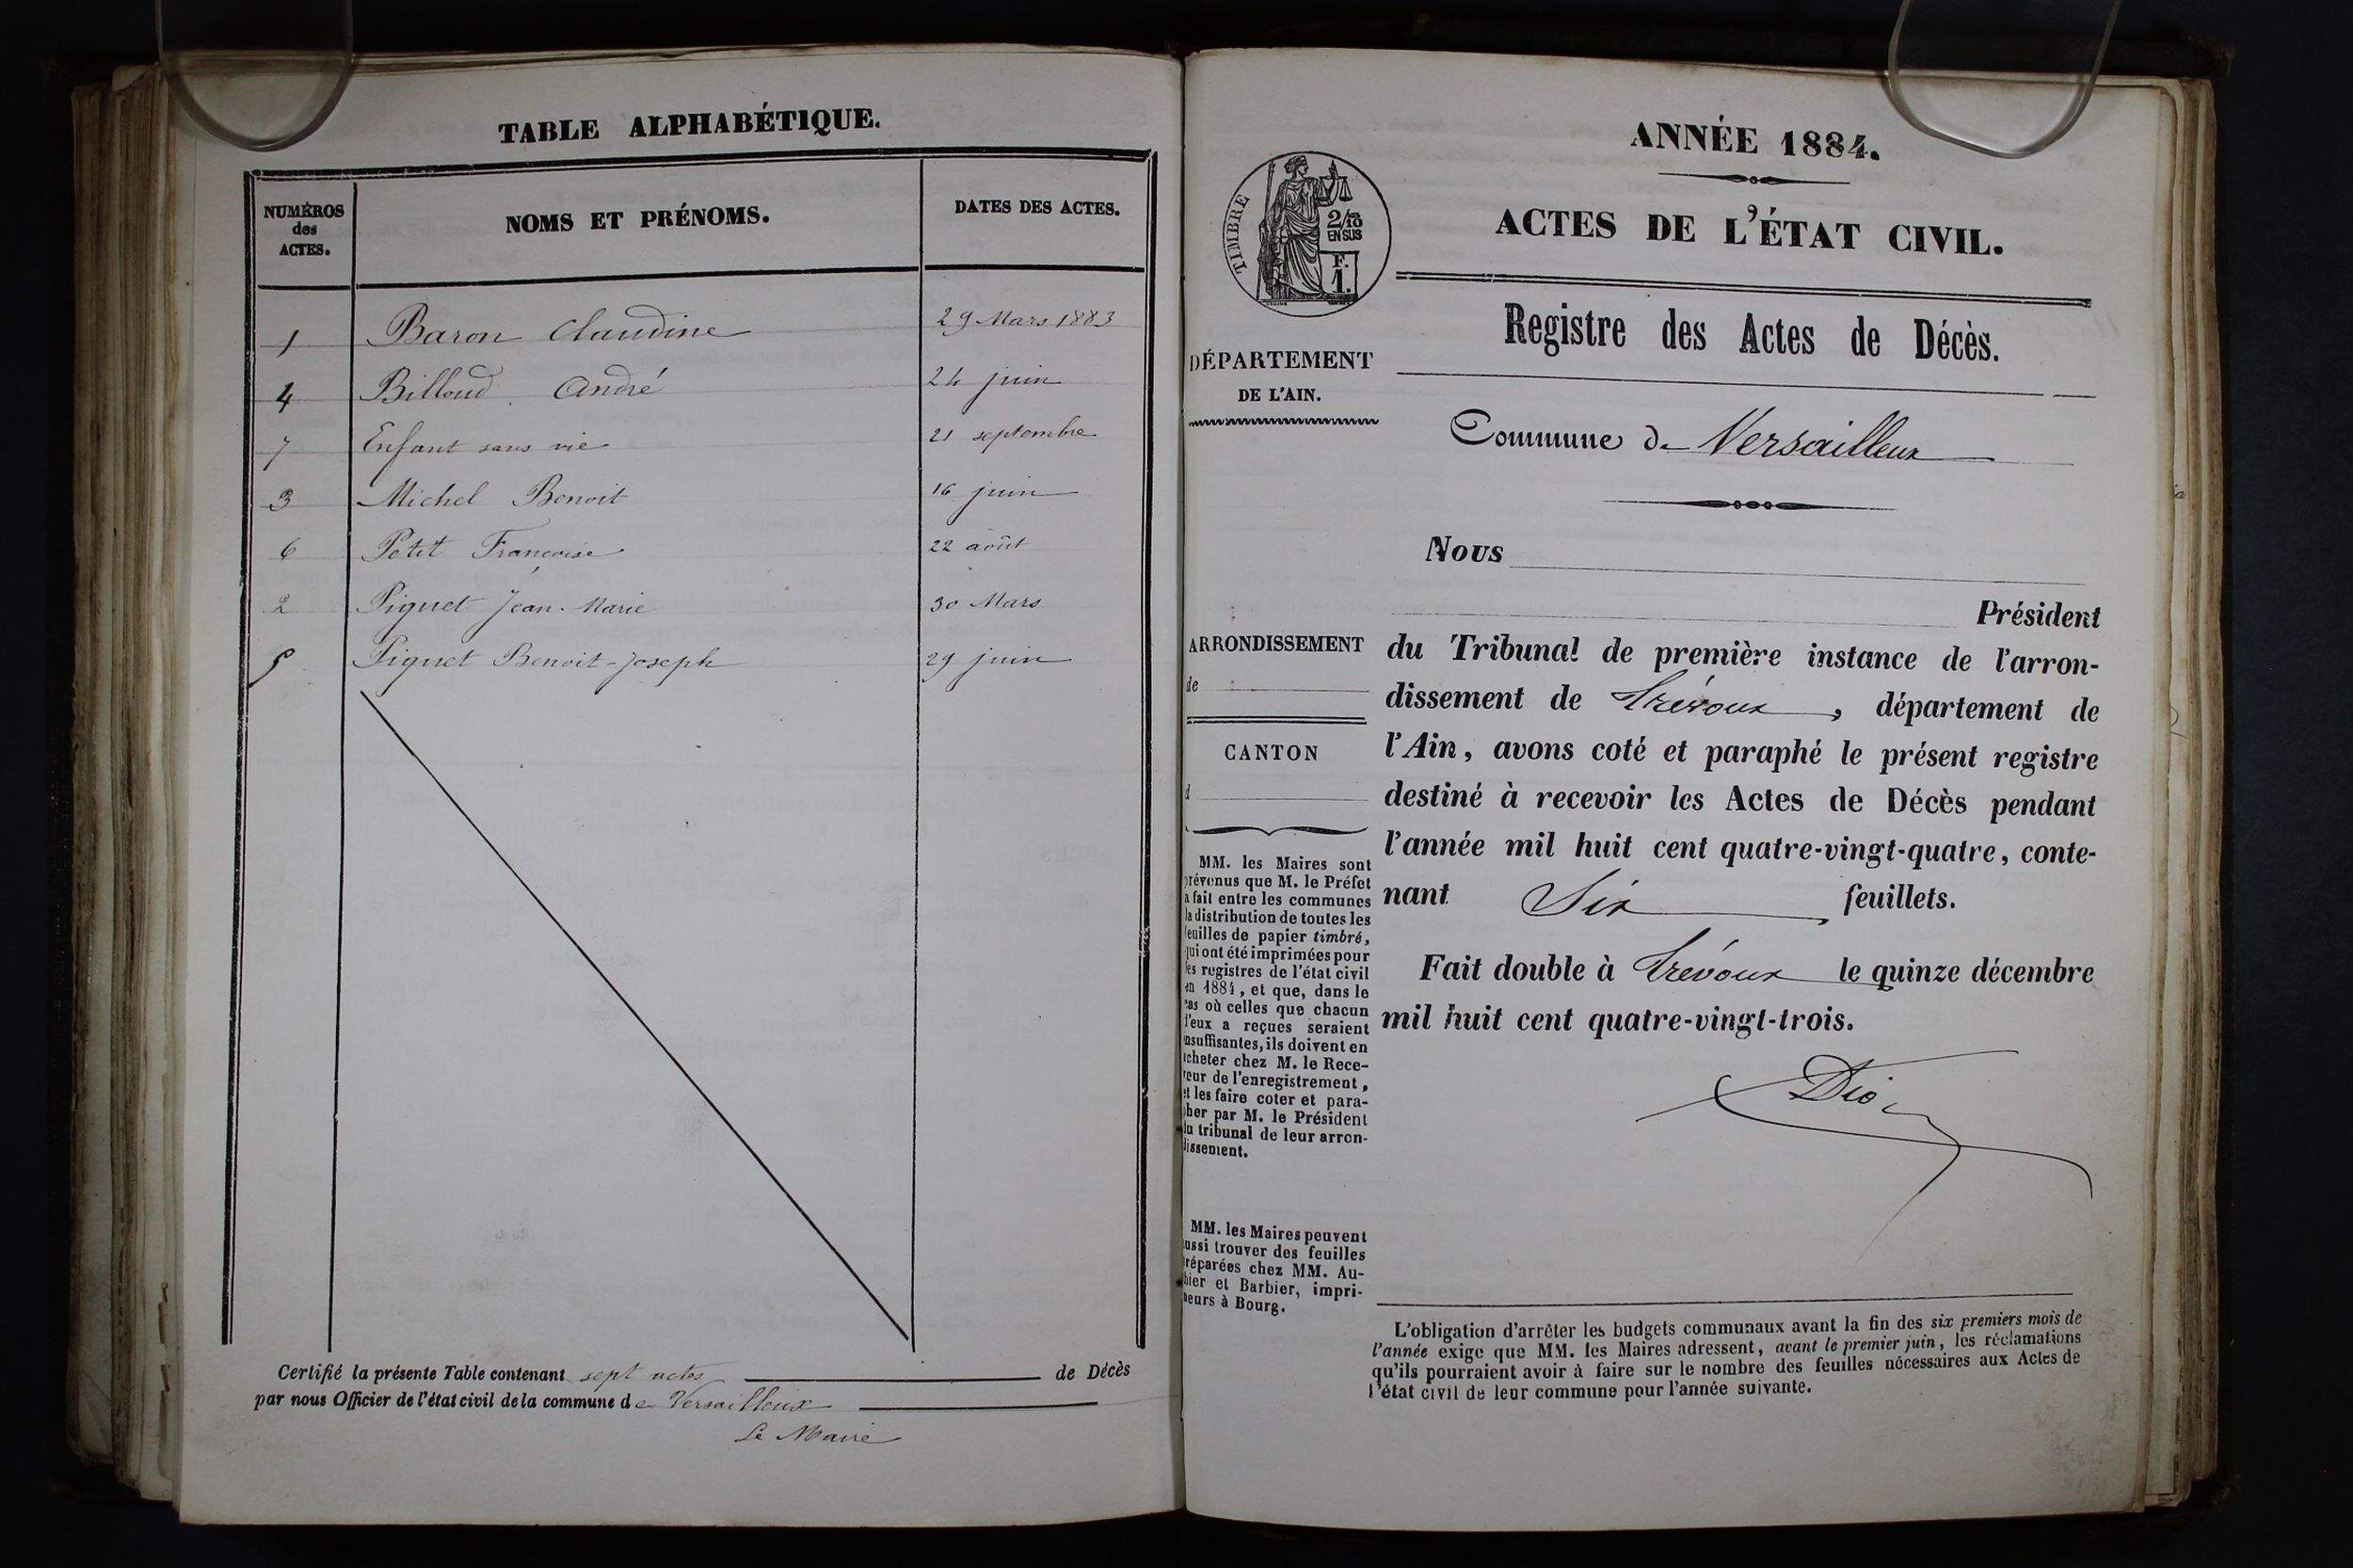 TABLE ALPHABÉTIQUE.
NUMÉROS des ACTES. NOMS ET PRÉNOMS. DATES DES ACTES.
1 Baron Claudine 29 Mars 1883
4 Billoud André 24 juin
7 Enfant sans vie 21 septembre
3 Michel Benoit 16 juin
6 Petit Françoise 22 août
2 Piguet Jean-Marie 30 Mars
5 Piguet Benoit-Joseph 29 juin
Certifié la présente Table contenant sept actes de Décès
par nous Officier de l'état civil de la commune de Versailleux
Le Maire
ANNÉE 1884.
ACTES DE L'ÉTAT CIVIL.
TIMBRE
2/10
EN SUS
F.
1.
Registre des Actes de Décès.
DÉPARTEMENT
DE L'AIN.
Commune de Versailleux
Nous
Président
du Tribunal de première instance de l'arron-
dissement de Trévoux, département de
l'Ain, avons coté et paraphé le présent registre
destiné à recevoir les Actes de Décès pendant
l'année mil huit cent quatre-vingt-quatre, conte-
nant Six feuillets.
Fait double à Trévoux le quinze décembre
mil huit cent quatre-vingt-trois.
ARRONDISSEMENT
de
CANTON
d
MM. les Maires sont
prévenus que M. le Préfet
a fait entre les communes
la distribution de toutes les
feuilles de papier timbré,
qui ont été imprimées pour
les registres de l'état civil
en 1884, et que, dans le
cas où celles que chacun
d'eux a reçues seraient
insuffisantes, ils doivent en
acheter chez M. le Rece-
veur de l'enregistrement,
et les faire coter et para-
pher par M. le Président
du tribunal de leur arron-
dissement.
MM. les Maires peuvent
aussi trouver des feuilles
préparées chez MM. Au-
bier et Barbier, impri-
meurs à Bourg.
L'obligation d'arrêter les budgets communaux avant la fin des six premiers mois de
l'année exige que MM. les Maires adressent, avant le premier juin, les réclamations
qu'ils pourraient avoir à faire sur le nombre des feuilles nécessaires aux Actes de
l'état civil de leur commune pour l'année suivante.